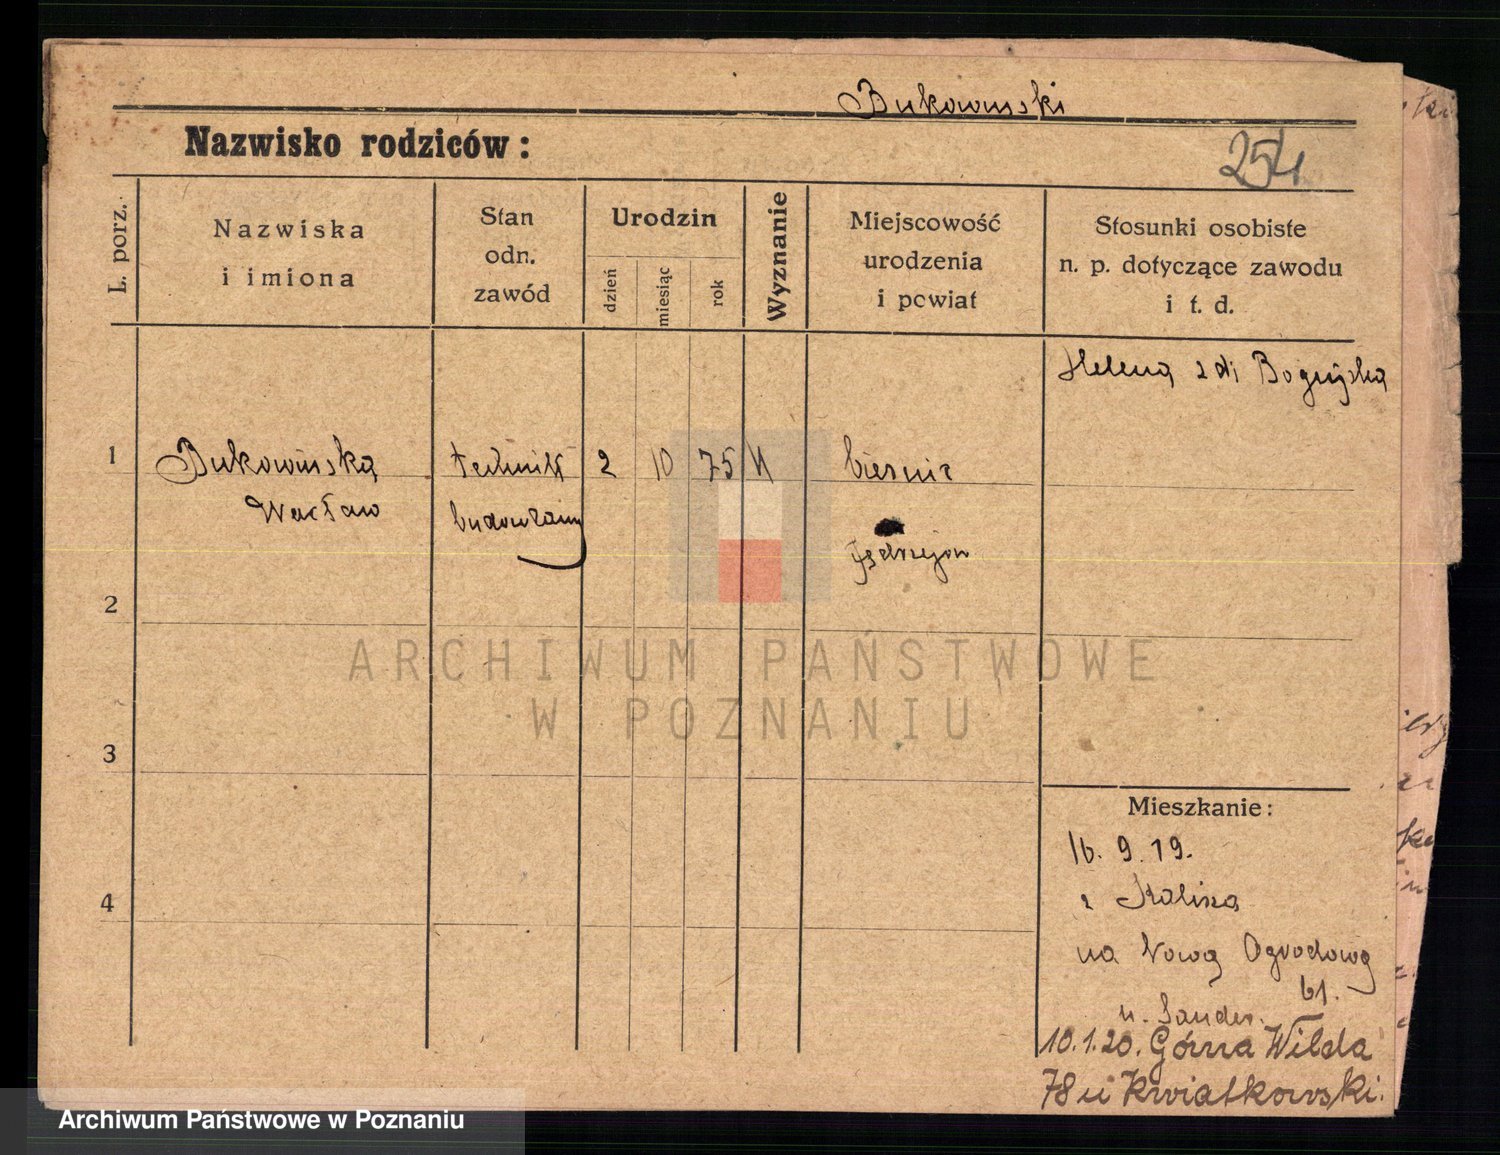 Bukowinski
Nazwisko rodziców:
254
L. porz.
Nazwiska
i imiona
Stan
odn.
zawód
Urodzin
dzień
miesiąc
rok
Wyznanie
Miejscowość
urodzenia
i powiat
Stosunki osobiste
n. p. dotyczące zawodu
i t. d.
Helena z d.
1
Wacław
technik
budowlany
2
10
75
2
3
4
Mieszkanie:
16. 9. 19.
z Kalisza
na Nową Ogrodową
61.
u. Sander.
10.1.20. Górna Wilda
78 u Kwiatkowski.
ARCHIWUM PAŃSTWOWE
W POZNANIU
Archiwum Państwowe w Poznaniu